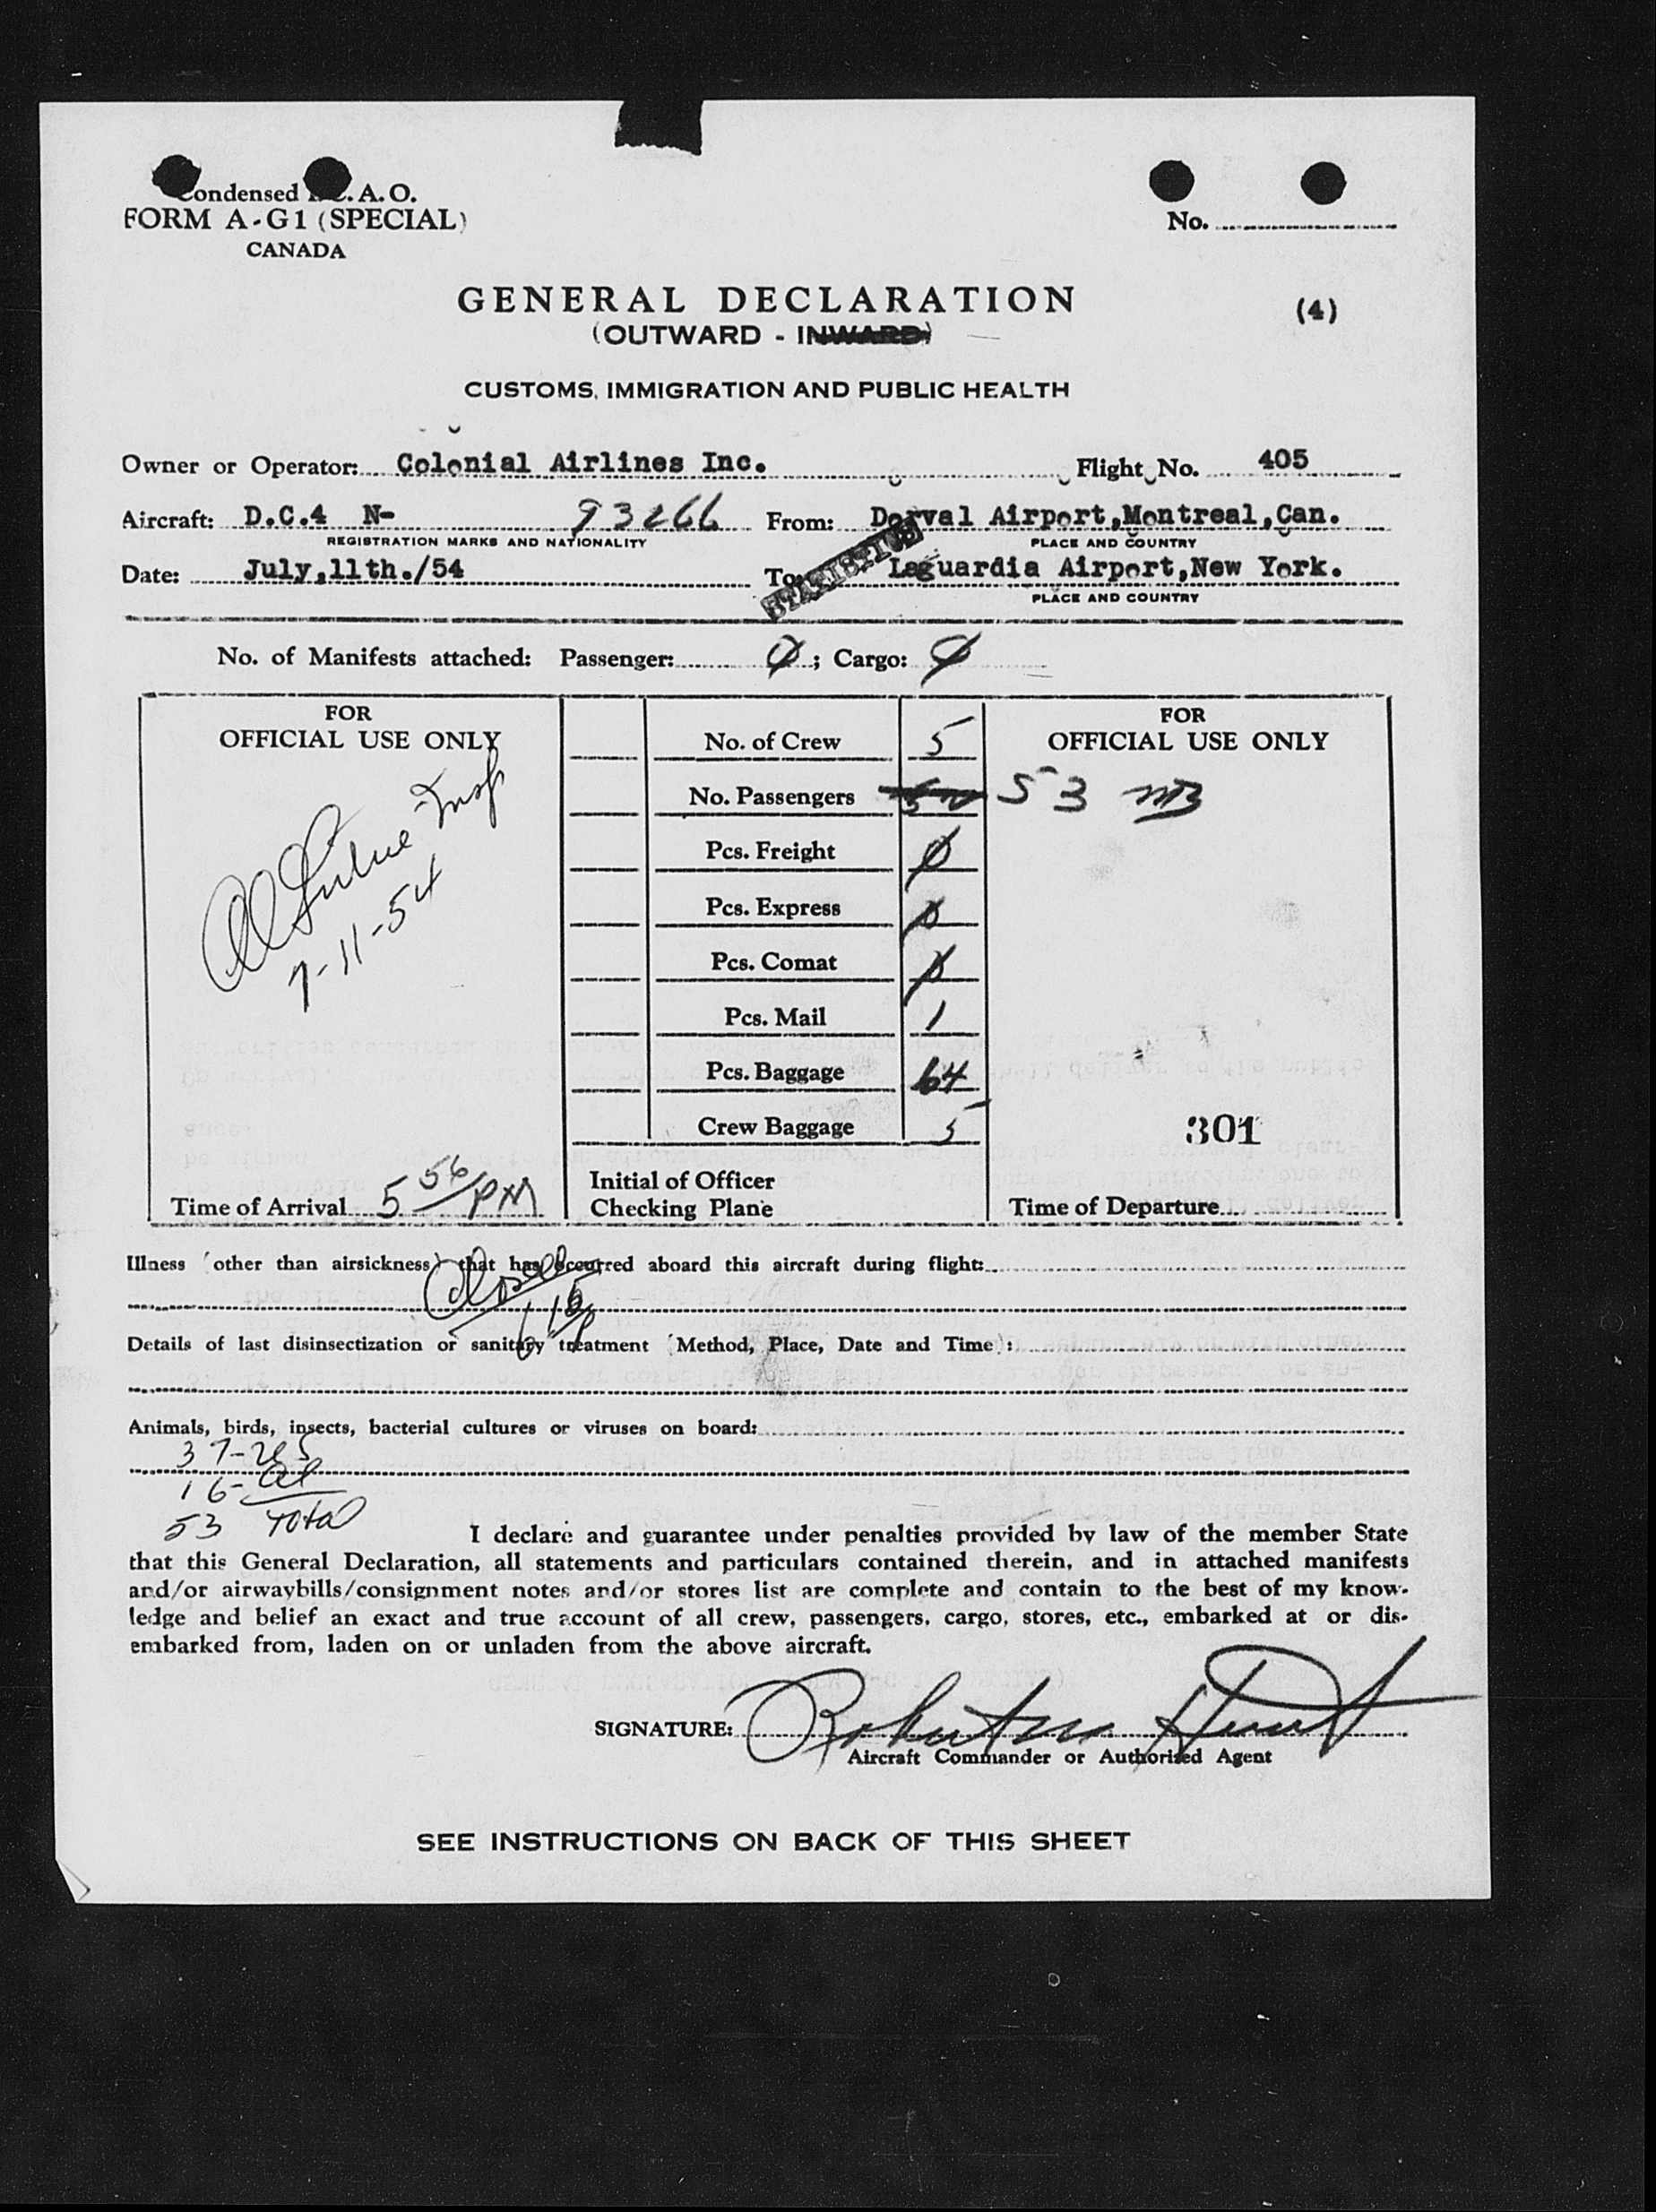 Condensed I.C.A.O.
FORM A-G1 (SPECIAL)
CANADA
No.
GENERAL DECLARATION
(4)
(OUTWARD - INWARD)
CUSTOMS, IMMIGRATION AND PUBLIC HEALTH
Owner or Operator: Colonial Airlines Inc. Flight No. 405
Aircraft: D.C.4 N- 93266 From: Dorval Airport,Montreal,Can.
REGISTRATION MARKS AND NATIONALITY PLACE AND COUNTRY
STATISTICS
Date: July,11th./54 To: Laguardia Airport,New York.
PLACE AND COUNTRY
No. of Manifests attached: Passenger: 0 ; Cargo: 0
FOR
OFFICIAL USE ONLY
Insp
7-11-54
Time of Arrival 5 56/PM
No. of Crew 5
No. Passengers 53 MB
Pcs. Freight 0
Pcs. Express 0
Pcs. Comat 0
Pcs. Mail 1
Pcs. Baggage 64
Crew Baggage 5
Initial of Officer
Checking Plane
FOR
OFFICIAL USE ONLY
301
Time of Departure
Illness (other than airsickness) that has occurred aboard this aircraft during flight:
Details of last disinsectization or sanitary treatment (Method, Place, Date and Time):
Animals, birds, insects, bacterial cultures or viruses on board:
37-
16-
53 Total
I declare and guarantee under penalties provided by law of the member State
that this General Declaration, all statements and particulars contained therein, and in attached manifests
and/or airwaybills/consignment notes and/or stores list are complete and contain to the best of my know-
ledge and belief an exact and true account of all crew, passengers, cargo, stores, etc., embarked at or dis-
embarked from, laden on or unladen from the above aircraft.
SIGNATURE:
Aircraft Commander or Authorized Agent
SEE INSTRUCTIONS ON BACK OF THIS SHEET